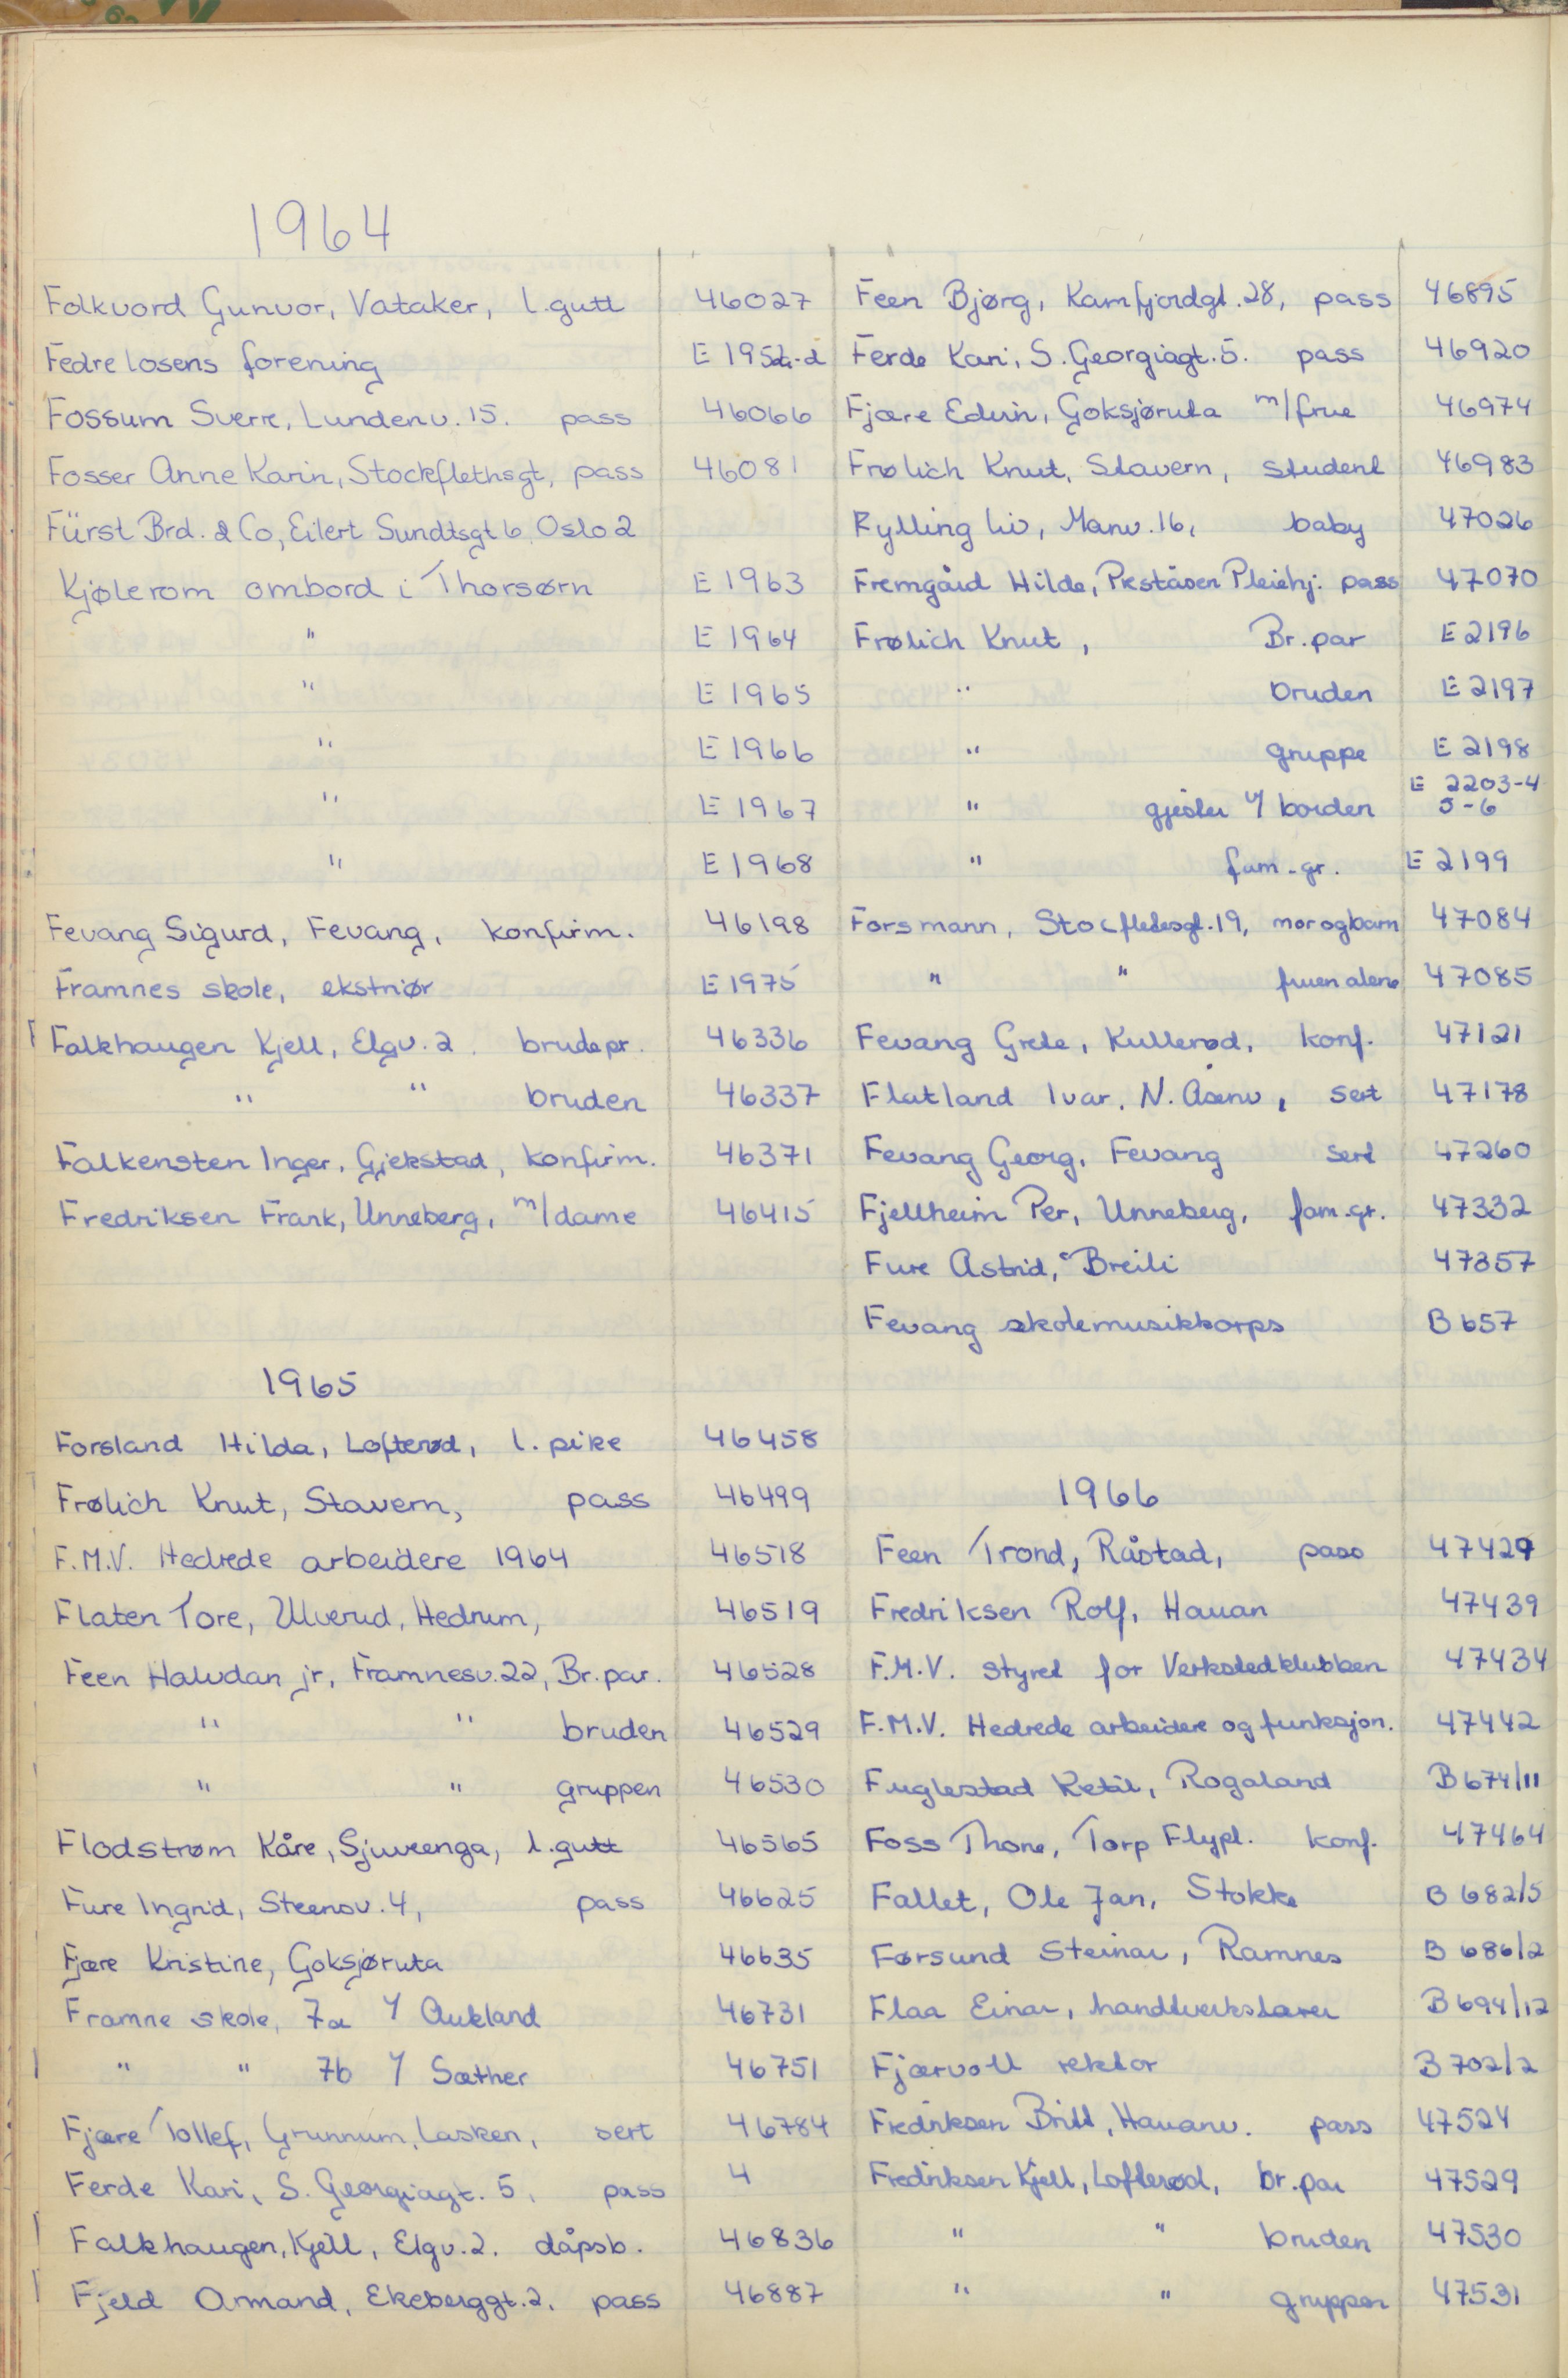 1964
Folkvord Gunvor, Vataker, l.gutt 46027
Fedrelosens forening E 1952a-d
Fossum Sverre, Lundenv. 15. pass 46066
Fosser Anne Karin, Stockflethsgt, pass 46081
Fürst Brd. & Co, Eilert Sundtsgt 6 Oslo 2
Kjølerom ombord i Thorsørn E 1963
" E 1964
" E 1965
" E 1966
" E 1967
" E 1968
Fevang Sigurd, Fevang, konfirm. 46198
Framnes skole, ekstriør E 1975
Falkhaugen Kjell, Elgv. 2. brudepr. 46336
" " bruden 46337
Falkensten Inger, Gjekstad, konfirm. 46371
Fredriksen Frank, Unneberg, m/dame 46415
1965
Forsland Hilda, Lofterød, l. pike 46458
Frølich Knut, Stavern, pass 46499
F.M.V. Hedrede arbeidere 1964 46518
Flaten Tore, Ulverud, Hedrum, 46519
Feen Halvdan jr, Framnesv. 22, Br. par. 46528
" " bruden 46529
" " gruppen 46530
Flodstrøm Kåre, Sjuveenga, l.gutt 46565
Fure Ingrid, Steensv. 4, pass 46625
Fjære Kristine, Goksjøruta 46635
Framne skole, 7a v/ Aukland 46731
" " 7b v/ Sæther 46751
Fjære Tollef, Grunnum, Lasken, sert 46784
Ferde Kari, S. Georgiagt. 5, pass 4
Falkhaugen, Kjell, Elgv. 2. dåpsb. 46836
Fjeld Armand, Ekeberggt. 2, pass 46887
Feen Bjørg, Kamfjordgt. 28, pass 46895
Ferde Kari, S. Georgiagt. 5. pass 46920
Fjære Edvin, Goksjøruta m/frue 46974
Frølich Knut, Stavern, student 46983
Fylling Liv, Manv. 16, baby 47026
Fremgård Hilde, Preståsen Pleiehj. pass 47070
Frølich Knut, Br. par E 2196
" bruden E 2197
" gruppe E 2198
" gjester v/ borden E 2203-4 5-6
" fam. gr. E 2199
Forsmann, Stocfletesgt. 19, mor og barn 47084
" " fruen alene 47085
Fevang Grete, Kullerød, konf. 47121
Flatland Ivar, N. Åsenv, sert 47178
Fevang Georg, Fevang sert 47260
Fjellheim Per, Unneberg, fam. gr. 47332
Fure Astrid, Breili 47357
Fevang skolemusikkorps B 657
1966
Feen Trond, Råstad, pass 47429
Fredriksen Rolf, Hauan 47439
F.M.V. styret for Verkstedklubben 47434
F.M.V. Hedrede arbeidere og funksjon. 47442
Fuglestad Ketil, Rogaland B 674/11
Foss Thone, Torp Flypl. konf. 47464
Fallet, Ole Jan, Stokke B 682/5
Førsund Steinar, Ramnes B 686/2
Flaa Einar, handtverkslærer B 694/12
Fjærvoll rektor B 702/2
Fredriksen Britt, Hauanv. pass 47524
Fredriksen Kjell, Lofterød, br. par 47529
" " bruden 47530
" " gruppen 47531